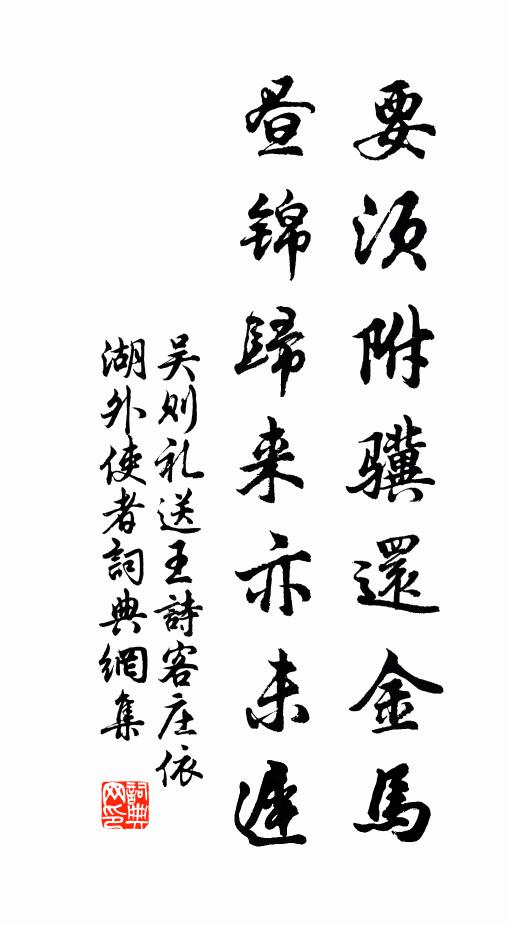 要须附骥還金馬
昼锦歸来亦未遲
吴则礼送王詩客庄依
湖外使者詞典網集
詞典网印